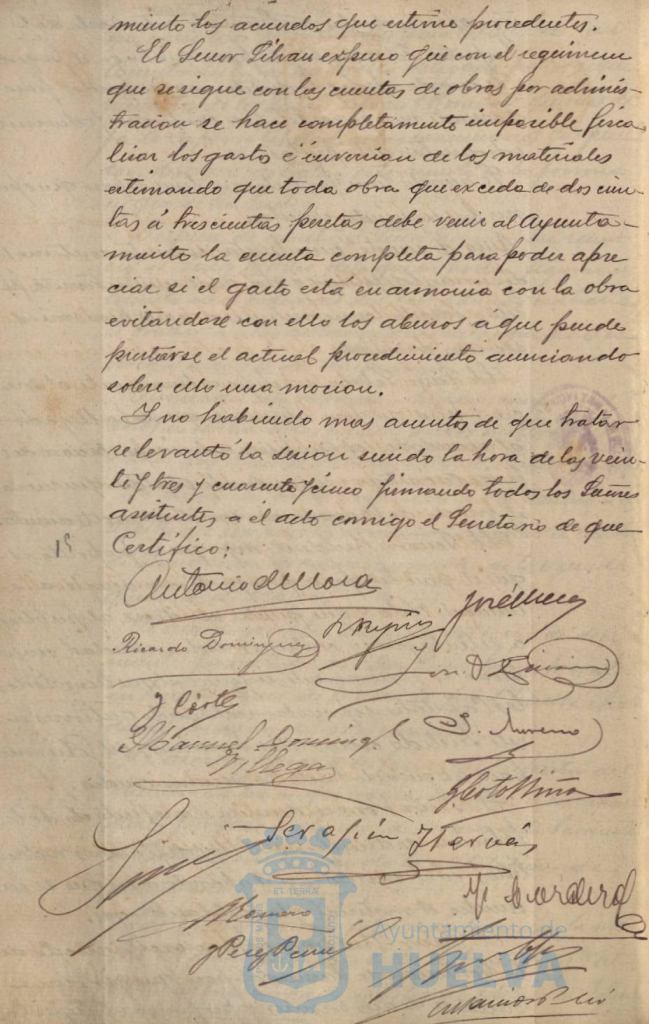 miento los acuerdos que estime procedentes.
El Señor Pilvan expuso que con el regimem
que se sigue con las cuentas de obras por adminis-
tracion se hace completamente imposible fisca-
lizar los gasto é inversion de los materiales
estimando que toda obra que exceda de dos cien-
tas á trescientas pesetas debe venir al Ayunta-
miento la cuenta completa para poder apre
ciar si el gasto está en armonia con la obra
evitandose con ello los abusos á que puede
prestarse el actual procedimiento anunciando
sobre ello una mocion.
Y no habiendo mas asuntos de que tratar
se levantó la sesion siendo la hora de las vein-
te y tres y cuarenta y cinco firmando todos los Señores
asistentes a él acto conmigo el Secretario de que
Certifico:
Antonio de Mora
José
Ricardo Dominguez
José
J Cortes
Manuel Doming
Villega
S. Moreno
J. Coto Niña
Serafin Hervás
M Cordero
Romero
J Perez
ET TERRAE
Ayuntamiento de
HUELVA